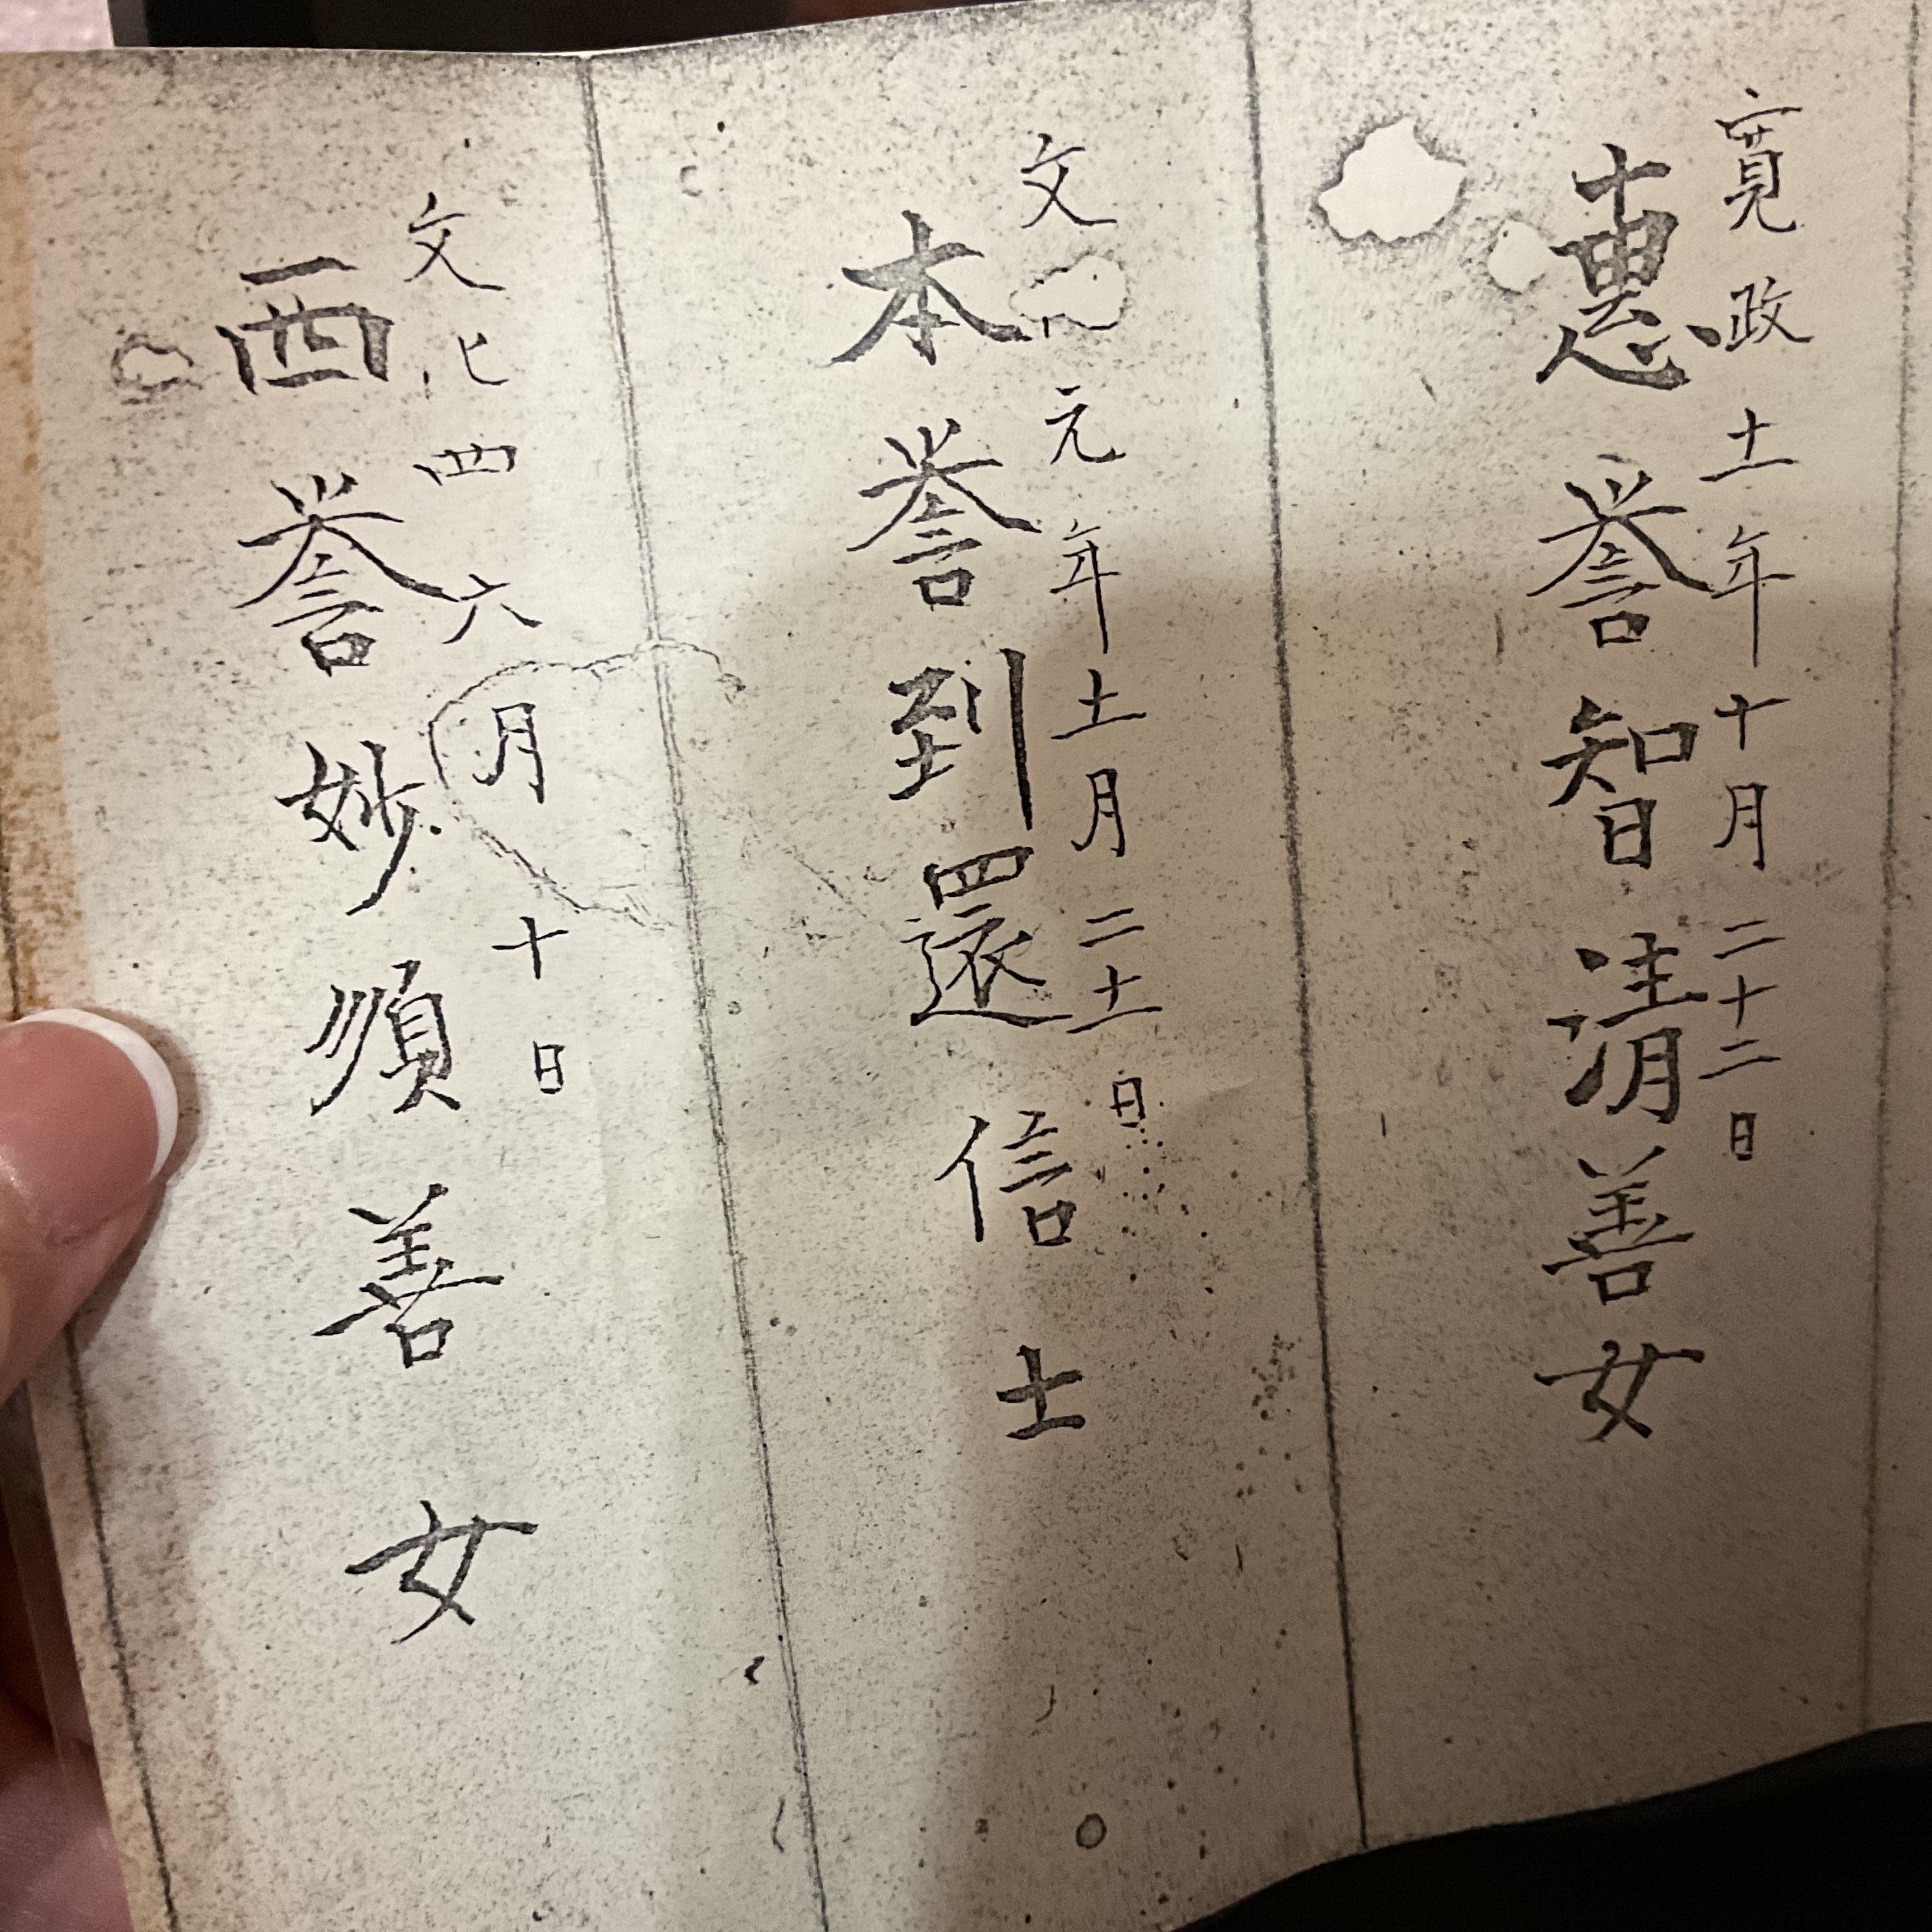 寛政十一年十月二十二日
恵誉智清善女
文 元年十一月二十一日
本誉到還信士
文化四六月十日
西誉妙順善女